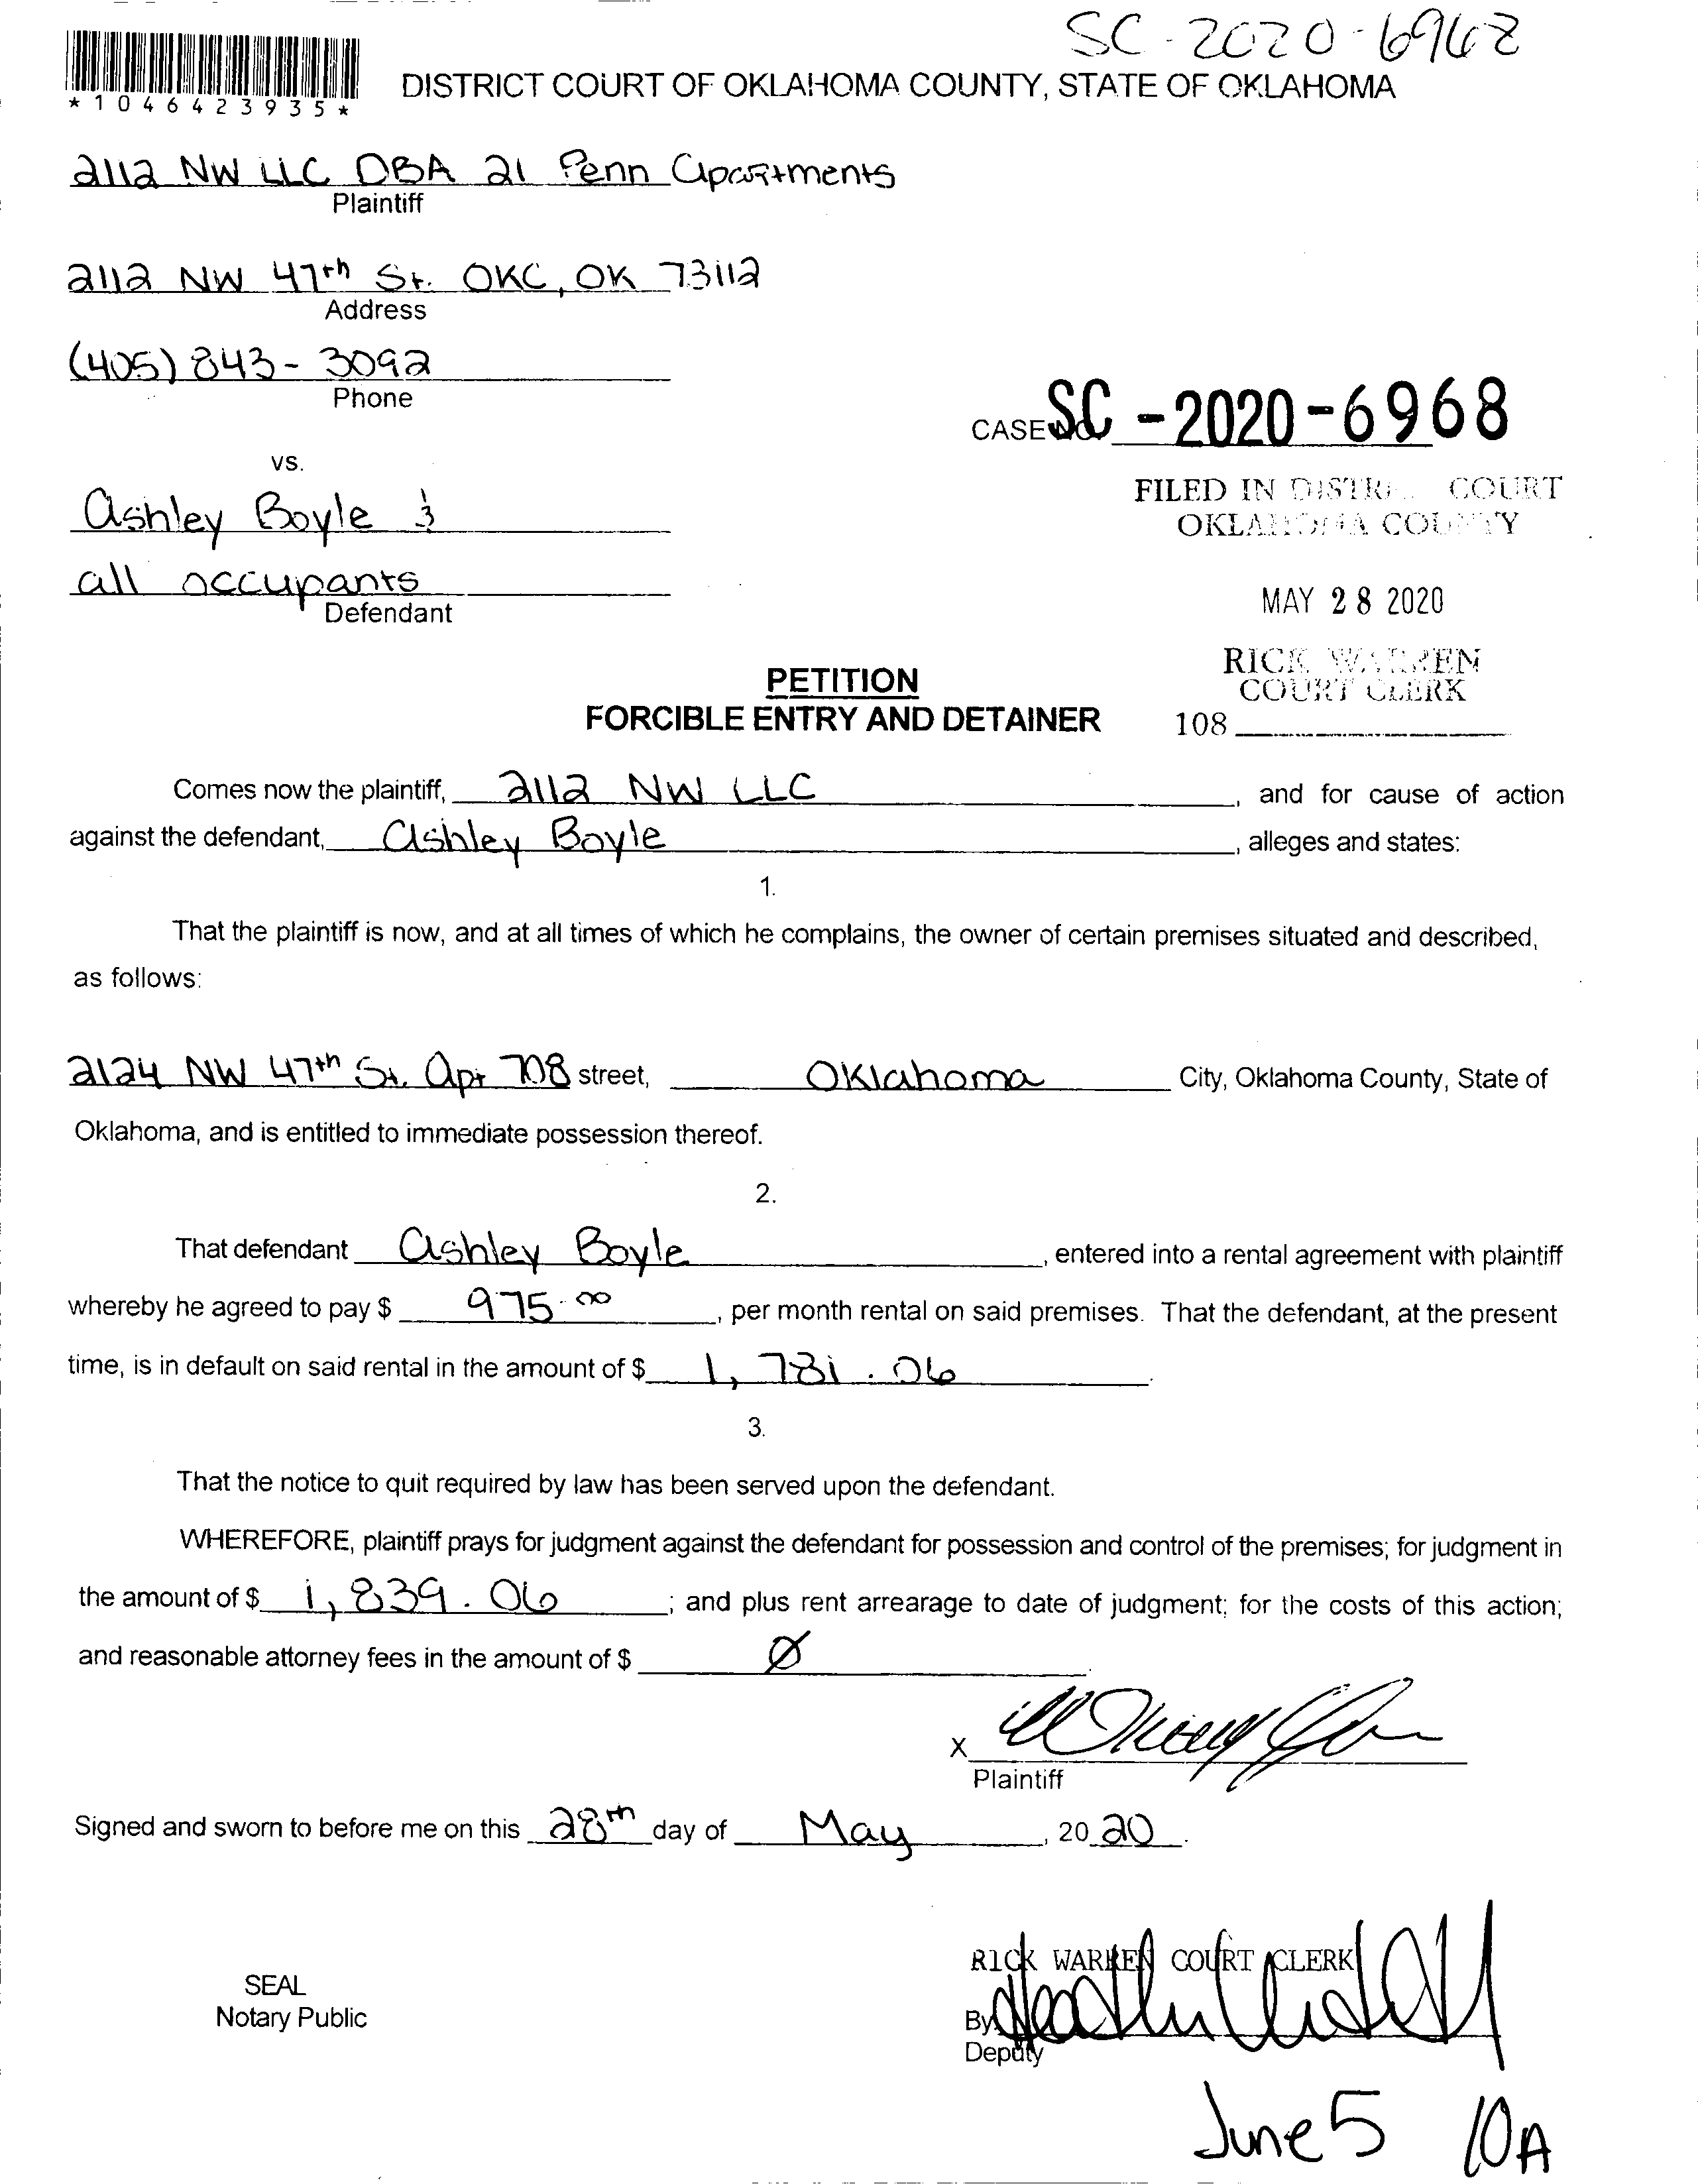 SC-2020-6968
*1046423935*
DISTRICT COURT OF OKLAHOMA COUNTY, STATE OF OKLAHOMA
2112 NW LLC DBA 21 Penn Apartments
Plaintiff
2112 NW 47th St. OKC, OK 73112
Address
(405) 843-3092
Phone
CASE NO. SC-2020-6968
vs.
FILED IN DISTRI COURT
OKLAHOMA COUNTY
Ashley Boyle &
all occupants
Defendant
MAY 28 2020
RICK WARREN
COURT CLERK
108
PETITION
FORCIBLE ENTRY AND DETAINER
Comes now the plaintiff, 2112 NW LLC, and for cause of action
against the defendant, Ashley Boyle, alleges and states:
1.
That the plaintiff is now, and at all times of which he complains, the owner of certain premises situated and described,
as follows:
2124 NW 47th St. Apt 708 street, Oklahoma City, Oklahoma County, State of
Oklahoma, and is entitled to immediate possession thereof.
2.
That defendant Ashley Boyle, entered into a rental agreement with plaintiff
whereby he agreed to pay $ 975.00, per month rental on said premises. That the defendant, at the present
time, is in default on said rental in the amount of $ 1,781.06.
3.
That the notice to quit required by law has been served upon the defendant.
WHEREFORE, plaintiff prays for judgment against the defendant for possession and control of the premises; for judgment in
the amount of $ 1,839.06; and plus rent arrearage to date of judgment; for the costs of this action;
and reasonable attorney fees in the amount of $ Ø.
X
Plaintiff
Signed and sworn to before me on this 28th day of May, 2020.
RICK WARREN COURT CLERK
SEAL
Notary Public
By
Deputy
June 5 10A